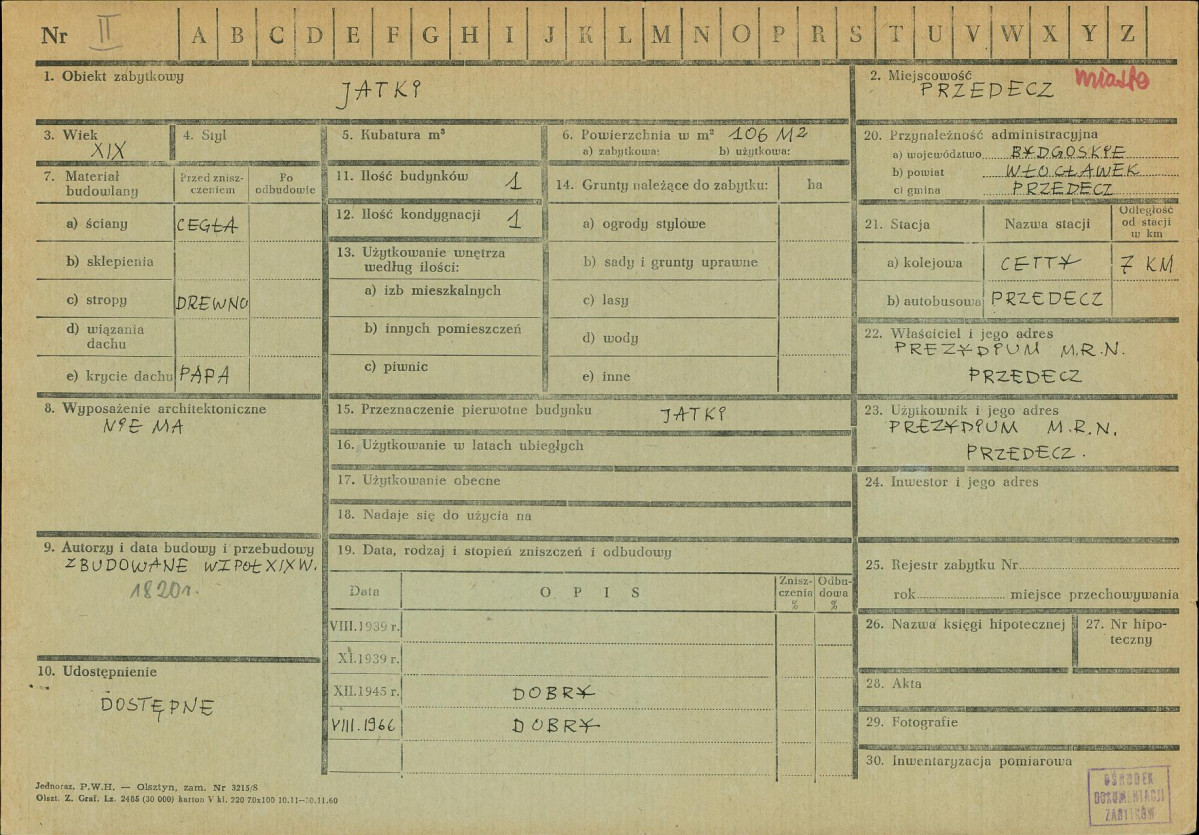 Nr II A B C D E F G H I J K L M N O P R S T U V W X Y Z
1. Obiekt zabytkowy
JATKI
2. Miejscowość
PRZEDECZ miasto
3. Wiek
XIX
4. Styl
5. Kubatura m³
6. Powierzchnia w m² 106 M2
a) zabytkowa: b) użytkowa:
7. Materiał budowlany
Przed zniszczeniem
Po odbudowie
a) ściany CEGŁA
b) sklepienia
c) stropy DREWNO
d) wiązania dachu
e) krycie dachu PAPA
8. Wyposażenie architektoniczne
NIE MA
9. Autorzy i data budowy i przebudowy
ZBUDOWANE W I POŁ XIX W.
1820 r.
10. Udostępnienie
DOSTĘPNE
11. Ilość budynków 1
12. Ilość kondygnacji 1
13. Użytkowanie wnętrza
według ilości:
a) izb mieszkalnych
b) innych pomieszczeń
c) piwnic
14. Grunty należące do zabytku: ha
a) ogrody stylowe
b) sady i grunty uprawne
c) lasy
d) wody
e) inne
15. Przeznaczenie pierwotne budynku JATKI
16. Użytkowanie w latach ubiegłych
17. Użytkowanie obecne
18. Nadaje się do użycia na
19. Data, rodzaj i stopień zniszczeń i odbudowy
Data OPIS Zniszczenia % Odbudowa %
VIII.1939 r.
XI.1939 r.
XII.1945 r. DOBRY
VIII.1966 DOBRY
20. Przynależność administracyjna
a) województwo BYDGOSKIE
b) powiat WŁOCŁAWEK
c) gmina PRZEDECZ
21. Stacja Nazwa stacji Odległość od stacji w km
a) kolejowa CETTY 7 KM
b) autobusowa PRZEDECZ
22. Właściciel i jego adres
PREZYDIUM M.R.N.
PRZEDECZ
23. Użytkownik i jego adres
PREZYDIUM M.R.N.
PRZEDECZ.
24. Inwestor i jego adres
25. Rejestr zabytku Nr
rok miejsce przechowywania
26. Nazwa księgi hipotecznej
27. Nr hipoteczny
28. Akta
29. Fotografie
30. Inwentaryzacja pomiarowa
OŚRODEK
DOKUMENTACJI
ZABYTKÓW
Jednoraz. P.W.H. — Olsztyn, zam. Nr 3215/S
Olszt. Z. Graf. Lz. 2485 (30 000) karton V kl. 220 70x100 10.11—30.11.60